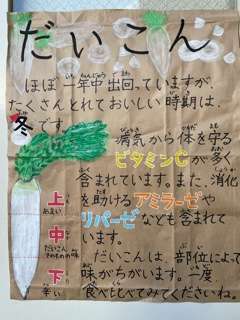 だいこん
ほぼ一年中出回っていますが、
たくさんとれておいしい時期は、
冬です。
病気から体を守る
ビタミンCが多く
含まれています。また、消化
を助けるアミラーゼや
リパーゼなども含まれて
います。
だいこんは、部位によって
味がちがいます。一度
食べ比べてみてくださいね。
上
あまい
中
だいこん
そのものの味
下
辛い